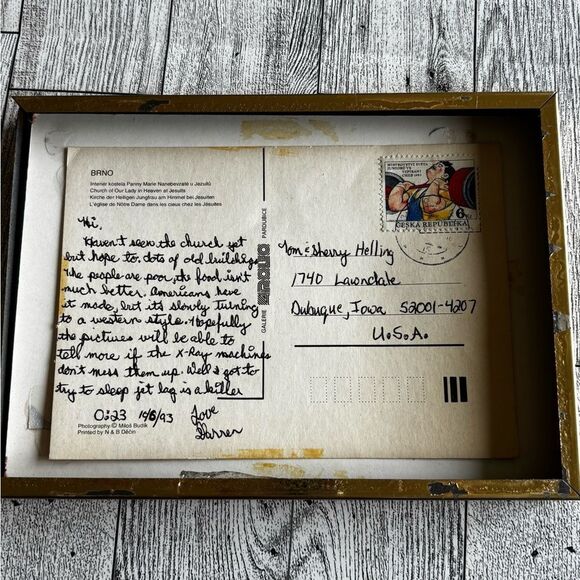 BRNO
Interiér kostela Panny Marie Nanebevzaté u Jezuitů
Church of Our Lady in Heaven at Jesuits
Kirche der Heiligen Jungfrau am Himmel bei Jesuiten
L'église de Nôtre Dame dans les cieux chez les Jésuites
Hi,
Haven't seen the church yet
but hope to. Lots of old buildings.
The people are poor, the food isn't
much better. Americans have
it made, but its slowly turning
to a western style. Hopefully
the pictures will be able to
tell more if the X-Ray machines
don't mess them up. Well I got to
try to sleep jet lag is a killer
0:23 10/6/93 Love
Darren
Photography © Miloš Budík
Printed by N & B Děčín
GALERIE
PARDUBICE
ČESKÁ REPUBLIKA
6
Tom & Sherry Helling
1740 Lawndale
Dubuque, Iowa 52001-4207
U.S.A.